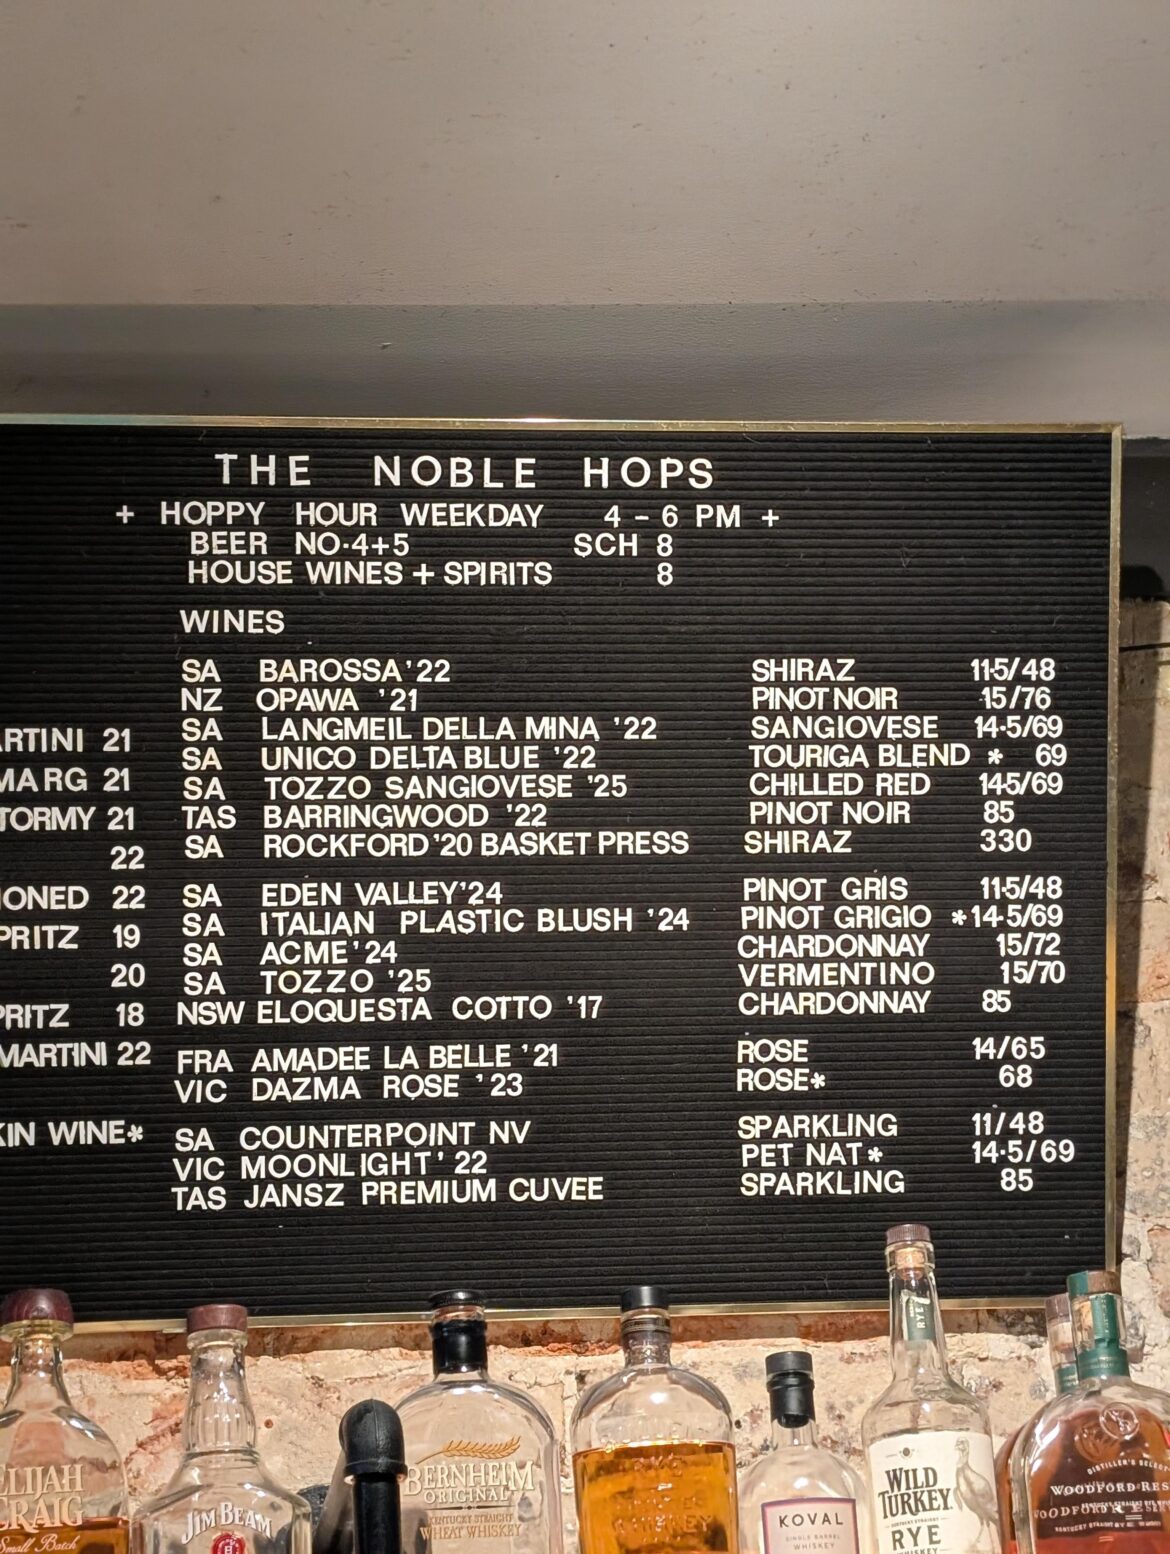 THE NOBLE HOPS
+ HOPPY HOUR WEEKDAY 4 - 6 PM +
BEER NO·4+5 SCH 8
HOUSE WINES + SPIRITS 8
WINES
SA BAROSSA '22 SHIRAZ 11·5/48
NZ OPAWA '21 PINOT NOIR 15/76
SA LANGMEIL DELLA MINA '22 SANGIOVESE 14·5/69
SA UNICO DELTA BLUE '22 TOURIGA BLEND * 69
SA TOZZO SANGIOVESE '25 CHILLED RED 14·5/69
TAS BARRINGWOOD '22 PINOT NOIR 85
SA ROCKFORD '20 BASKET PRESS SHIRAZ 330
SA EDEN VALLEY '24 PINOT GRIS 11·5/48
SA ITALIAN PLASTIC BLUSH '24 PINOT GRIGIO *14·5/69
SA ACME '24 CHARDONNAY 15/72
SA TOZZO '25 VERMENTINO 15/70
NSW ELOQUESTA COTTO '17 CHARDONNAY 85
FRA AMADEE LA BELLE '21 ROSE 14/65
VIC DAZMA ROSE '23 ROSE* 68
SA COUNTERPOINT NV SPARKLING 11/48
VIC MOONLIGHT' 22 PET NAT* 14·5/69
TAS JANSZ PREMIUM CUVEE SPARKLING 85
ARTINI 21
MARG 21
TORMY 21
22
IONED 22
PRITZ 19
20
PRITZ 18
MARTINI 22
KIN WINE*
ELIJAH
CRAIG
Small Batch
JIM BEAM
B
BERNHEIM
ORIGINAL
KENTUCKY STRAIGHT
WHEAT WHISKEY
KOVAL
SINGLE BARREL
WHISKEY
RYE
WILD
TURKEY
KENTUCKY STRAIGHT
RYE
WHISKEY
DISTILLER'S SELECT
WOODFORD RESERVE
KENTUCKY STRAIGHT RYE WHISKEY